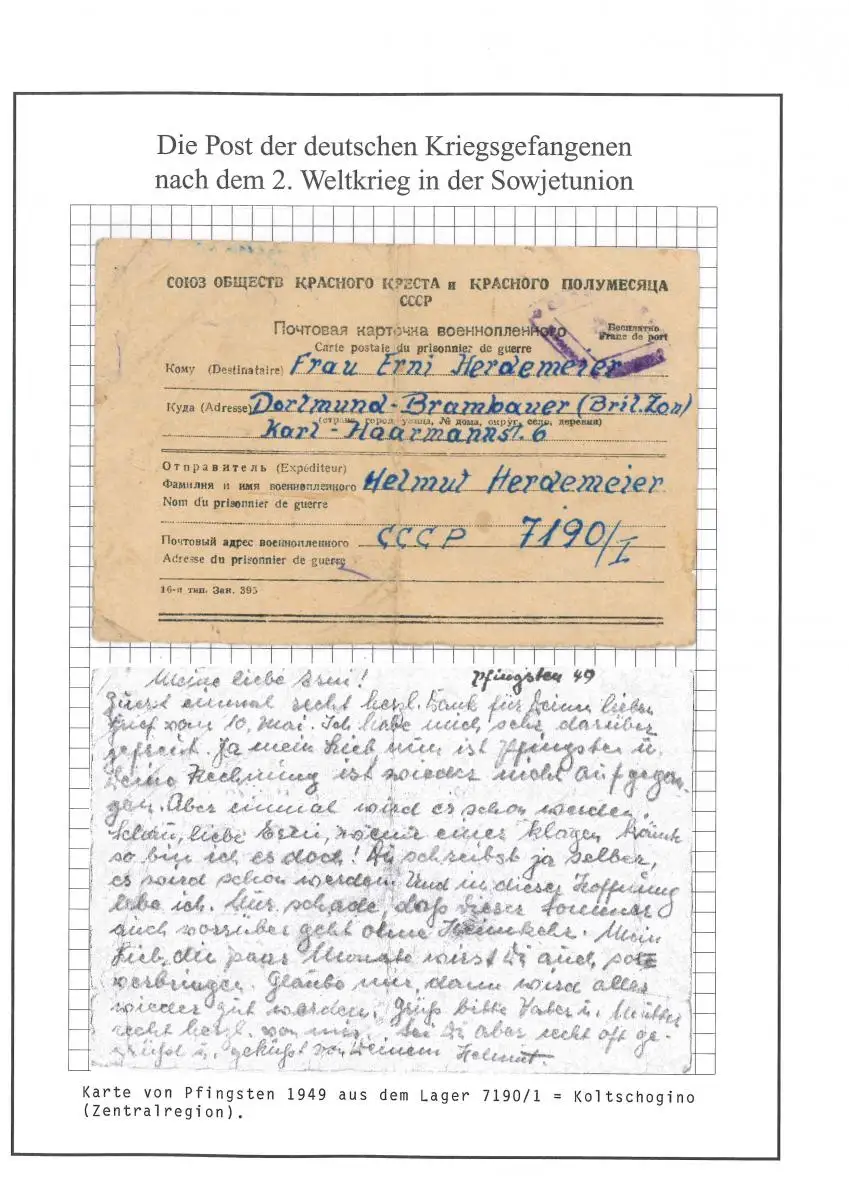 Die Post der deutschen Kriegsgefangenen
nach dem 2. Weltkrieg in der Sowjetunion
СОЮЗ ОБЩЕСТВ КРАСНОГО КРЕСТА и КРАСНОГО ПОЛУМЕСЯЦА
СССР
Почтовая карточка военнопленного
Бесплатно
Franc de port
Carte postale du prisonnier de guerre
Кому (Destinataire) Frau Erni Herdemeier
Куда (Adresse) Dortmund-Brambauer (Brit. Zon)
(страна, город, улица, № дома, округ, село, деревня)
Karl-Haarmannst. 6
Отправитель (Expéditeur)
Фамилия и имя военнопленного Helmut Herdemeier
Nom du prisonnier de guerre
Почтовый адрес военнопленного СССР 7190/I
Adresse du prisonnier de guerre
16-я тип. Зак. 395
Meine liebe Erni! Pfingsten 49
Zuerst einmal recht herzl. Dank für Deinen lieben
Brief vom 10. Mai. Ich habe mich sehr darüber
gefreut. Ja mein Lieb nun ist Pfingsten u.
Deine Rechnung ist wieder nicht aufgegan-
gen. Aber einmal wird es schon werden.
Schau, liebe Erni, wenn einer klagen könnt
so bin ich es doch! Du schreibst ja selber,
es wird schon werden. Und in dieser Hoffnung
lebe ich. Nur schade, daß dieser Sommer
auch vorrüber geht ohne Heimkehr. Mein
Lieb, die paar Monate wirst Du auch
verbringen. Glaube mir, dann wird alles
wieder gut werden. Grüß bitte Vater u. Mutter
recht herzl. von mir. Sei Du aber recht oft ge-
grüßt u. geküßt von Deinem Helmut.
Karte von Pfingsten 1949 aus dem Lager 7190/1 = Koltschogino
(Zentralregion).